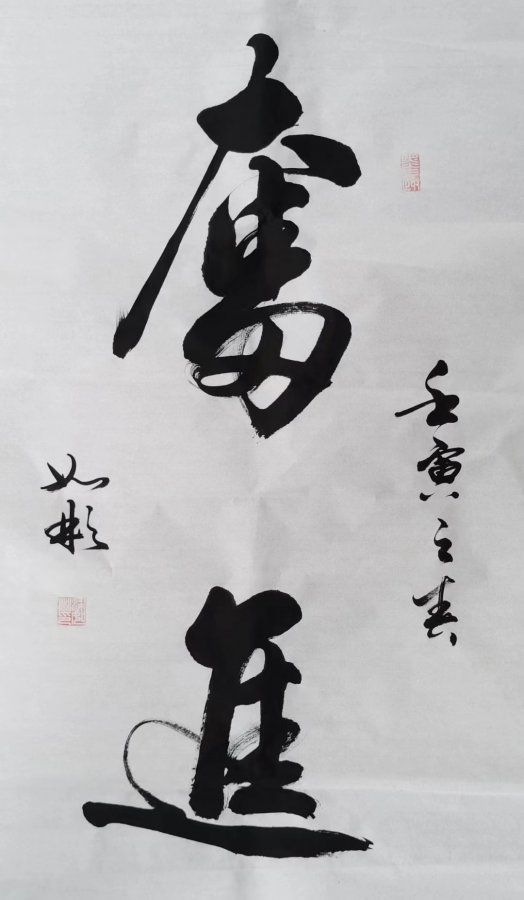 壬寅之春
奮進
如彬